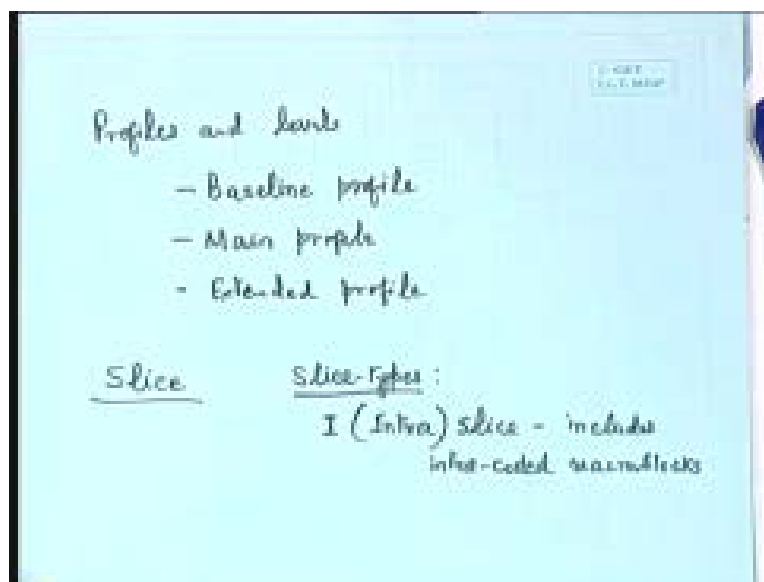 Profiles and levels
- Baseline profile
- Main profile
- Extended profile
Slice Slice-types :
I (Intra) slice - includes
intra-coded macroblocks